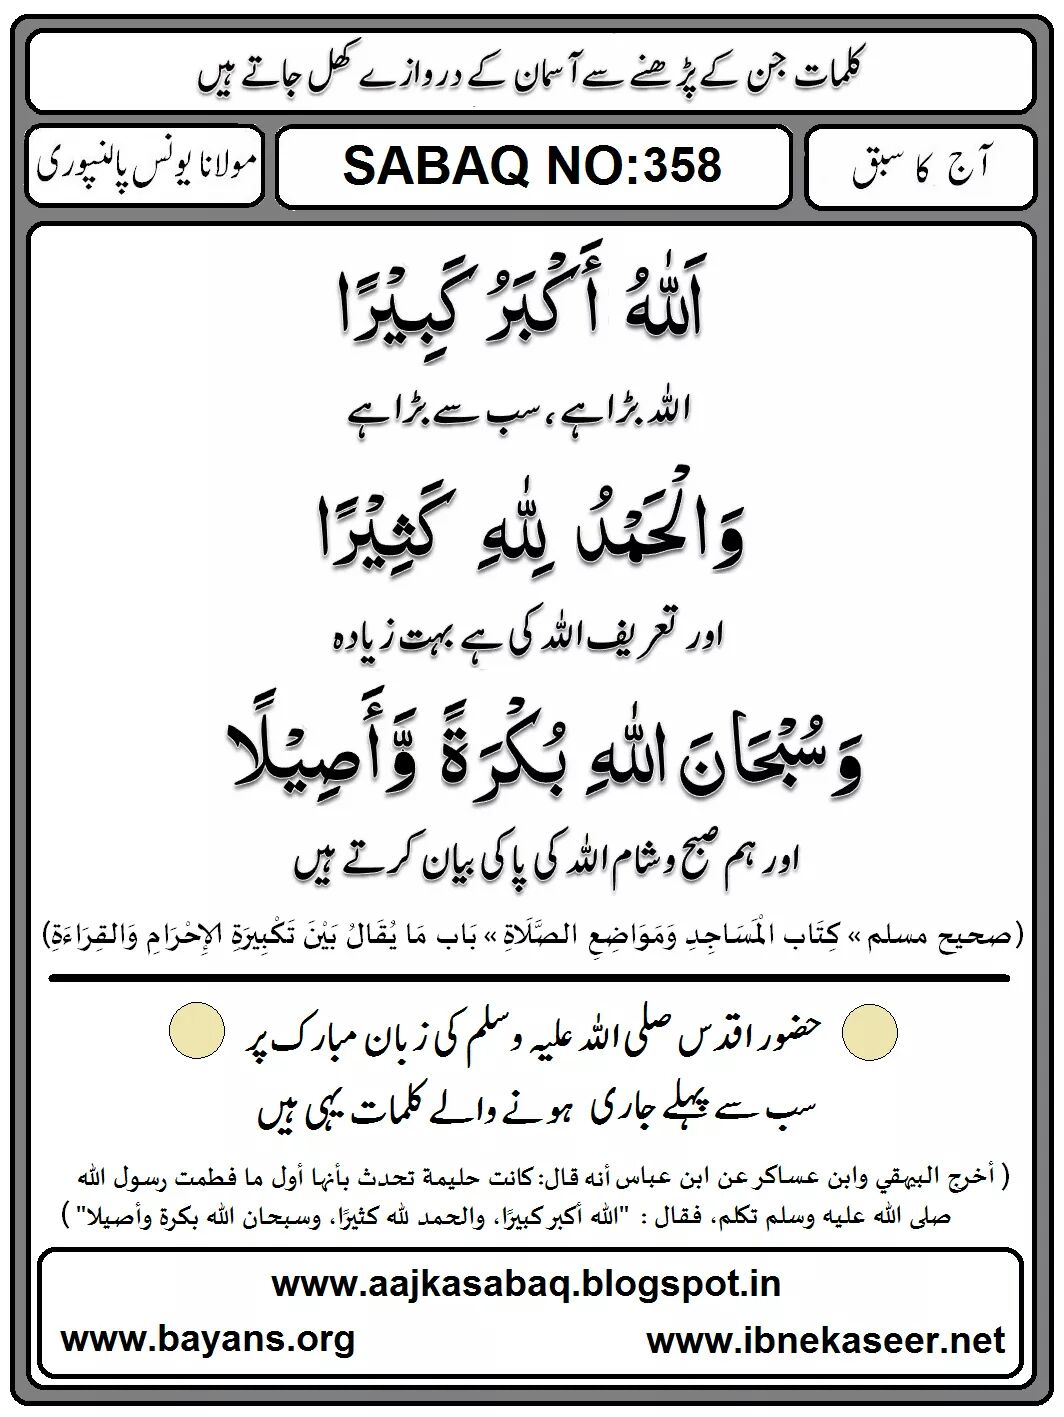 کلمات جن کے پڑھنے سے آسمان کے دروازے کھل جاتے ہیں
آج کا سبق
SABAQ NO:358
مولانا یونس پالنپوری
اَللّٰهُ أَكْبَرُ كَبِيْرًا
اللہ بڑا ہے ، سب سے بڑا ہے
وَالْحَمْدُ لِلّٰهِ كَثِيْرًا
اور تعریف اللہ کی ہے بہت زیادہ
وَسُبْحَانَ اللّٰهِ بُكْرَةً وَّأَصِيْلًا
اور ہم صبح و شام اللہ کی پاکی بیان کرتے ہیں
(صحيح مسلم » كِتَاب الْمَسَاجِدِ وَمَوَاضِعِ الصَّلَاةِ » بَاب مَا يُقَالُ بَيْنَ تَكْبِيرَةِ الإِحْرَامِ وَالقِرَاءَةِ)
حضور اقدس صلی اللہ علیہ وسلم کی زبان مبارک پر
سب سے پہلے جاری ہونے والے کلمات یہی ہیں
( أخرج البيهقي وابن عساكر عن ابن عباس أنه قال: كانت حليمة تحدث بأنها أول ما فطمت رسول الله
صلى الله عليه وسلم تكلم، فقال : "الله أكبر كبيرًا، والحمد لله كثيرًا، وسبحان الله بكرة وأصيلا" )
www.aajkasabaq.blogspot.in
www.bayans.org
www.ibnekaseer.net